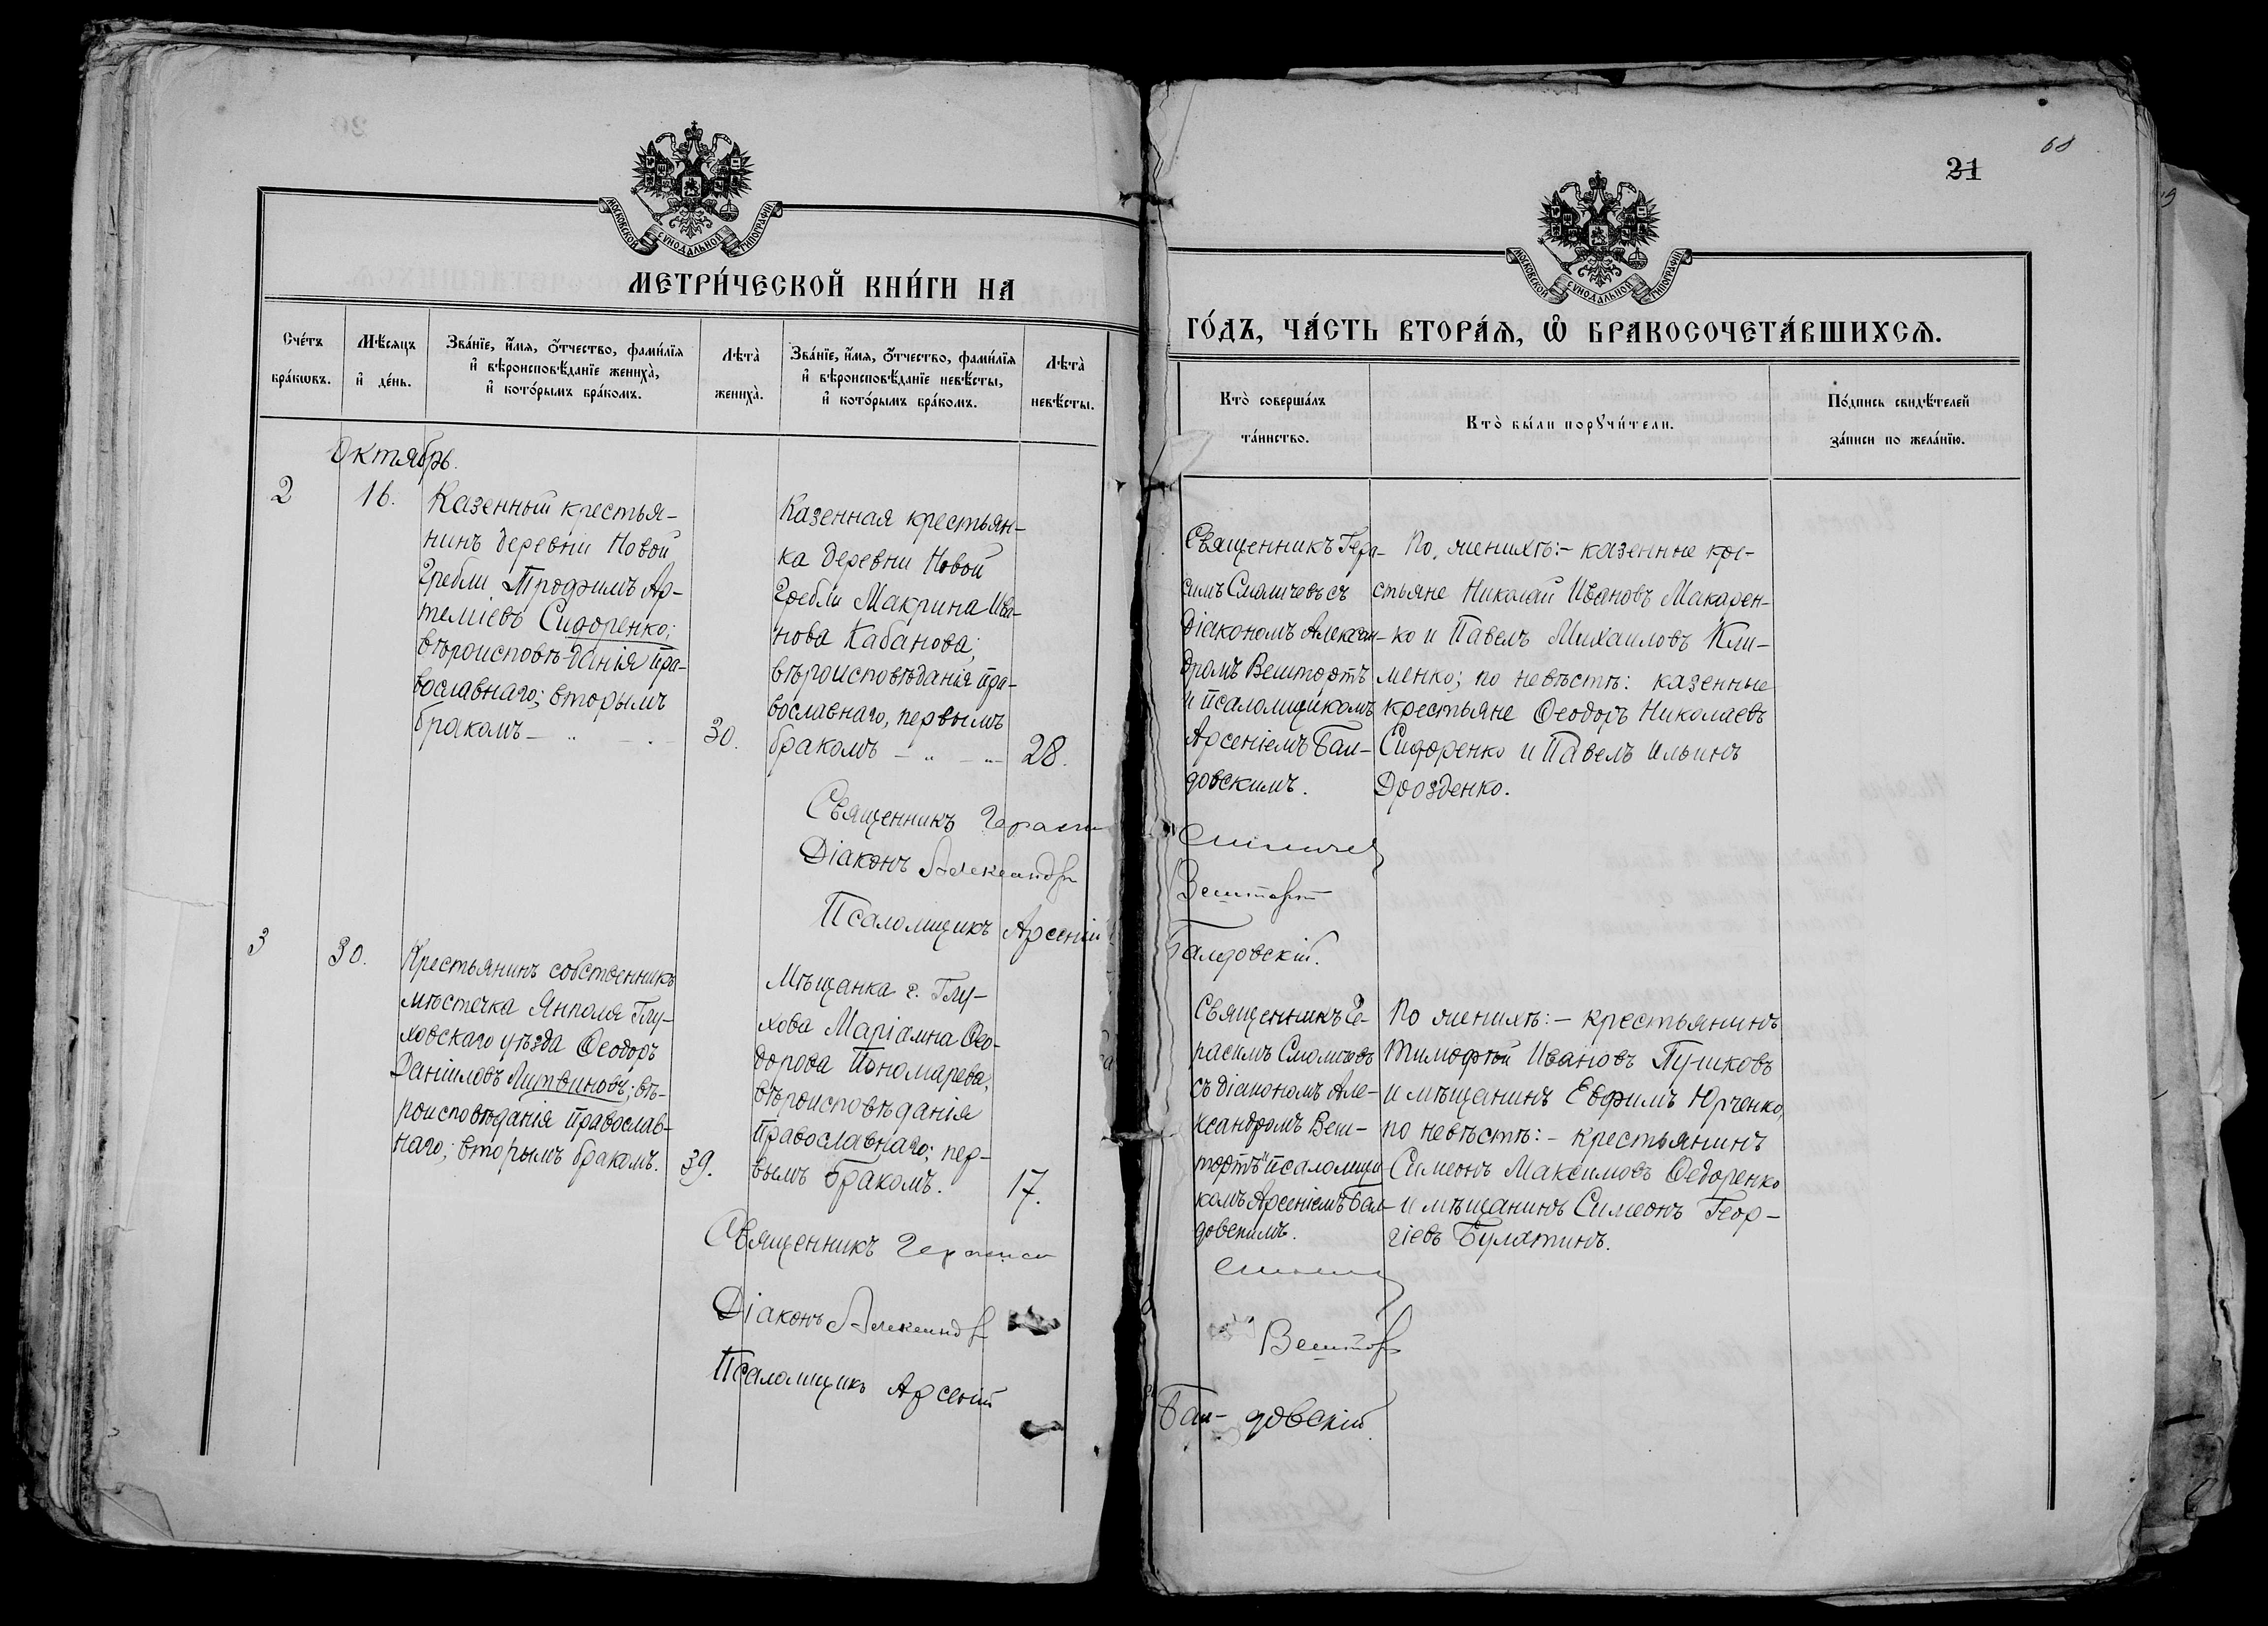 МОСКОВСКОЙ СѴНОДАЛЬНОЙ ТИПОГРАФІИ
МЕТРИ́ЧЕСКОЙ КНИ́ГИ НА
Сче́тъ бра́кѡвъ.
Мѣ́сяцъ и҆ де́нь.
Зва́нїе, и҆́мѧ, ѻ҆́тчество, фами́лїѧ
и҆ вѣроисповѣ́данїе жениха̀,
и҆ кото́рымъ бра́комъ.
Лѣта̀ жениха̀.
Зва́нїе, и҆́мѧ, ѻ҆́тчество, фами́лїѧ
и҆ вѣроисповѣ́данїе невѣ́сты,
и҆ кото́рымъ бра́комъ.
Лѣта̀ невѣ́сты.
Октябрь.
2
16.
Казенный крестья-
нинъ деревни Новой
Гребли Трофимъ Ар-
теміевъ Сидоренко;
вѣроисповѣданія пра-
вославнаго; вторымъ
бракомъ
30.
Казенная крестьян-
ка деревни Новой
Гребли Макрина Ива-
нова Кабанова;
вѣроисповѣданія пра-
вославнаго, первымъ
бракомъ
28.
Священникъ Герасим
Діаконъ Александръ
Псаломщикъ Арсеній
3
30.
Крестьянинъ собственникъ
мѣстечка Янполя Глу-
ховскаго уѣзда Ѳеодоръ
Даніиловъ Литвиновъ; вѣ-
роисповѣданія православ-
наго; вторымъ бракомъ.
39.
Мѣщанка г. Глу-
хова Маріамна Ѳео-
дорова Пономарева,
вѣроисповѣданія
православнаго; пер-
вымъ бракомъ.
17.
Священникъ Герасим
Діаконъ Александръ
Псаломщикъ Арсеній
68
21
МОСКОВСКОЙ СѴНОДАЛЬНОЙ ТИПОГРАФІИ
ГО́ДЪ, ЧА́СТЬ ВТОРА́Ѧ, Ѽ БРАКОСОЧЕТА́ВШИХСѦ.
Кто̀ соверша́лъ
та́инство.
Кто̀ бы́ли порꙋчи́тели.
По́дпись свидѣ́телей
за́писи по жела́нїю.
Священникъ Гера-
симъ Смоличевъ съ
Діакономъ Алексан-
дромъ Вештортъ
и псаломщикомъ
Арсеніемъ Бан-
довскимъ.
По женихѣ:- казенные кре-
стьяне Николай Ивановъ Макарен-
ко и Павелъ Михаиловъ Кли-
менко; по невѣстѣ: казенные
крестьяне Ѳеодоръ Николаевъ
Сидоренко и Павелъ Ильинъ
Дрозденко.
Смоличев
Вешторт
Бандовскій.
Священникъ Ге-
расимъ Смоличевъ
съ діакономъ Але-
ксандромъ Веш-
тортъ и псаломщи-
комъ Арсеніемъ Бан-
довскимъ.
По женихѣ:- крестьянинъ
Тимофей Ивановъ Пушковъ
и мѣщанинъ Евфимъ Юрченко,
по невѣстѣ:- крестьянинъ
Симеонъ Максимовъ Ѳедоренко
и мѣщанинъ Симеонъ Геор-
гіевъ Булатинъ.
Смолич
Вештор
Бан- довскій.